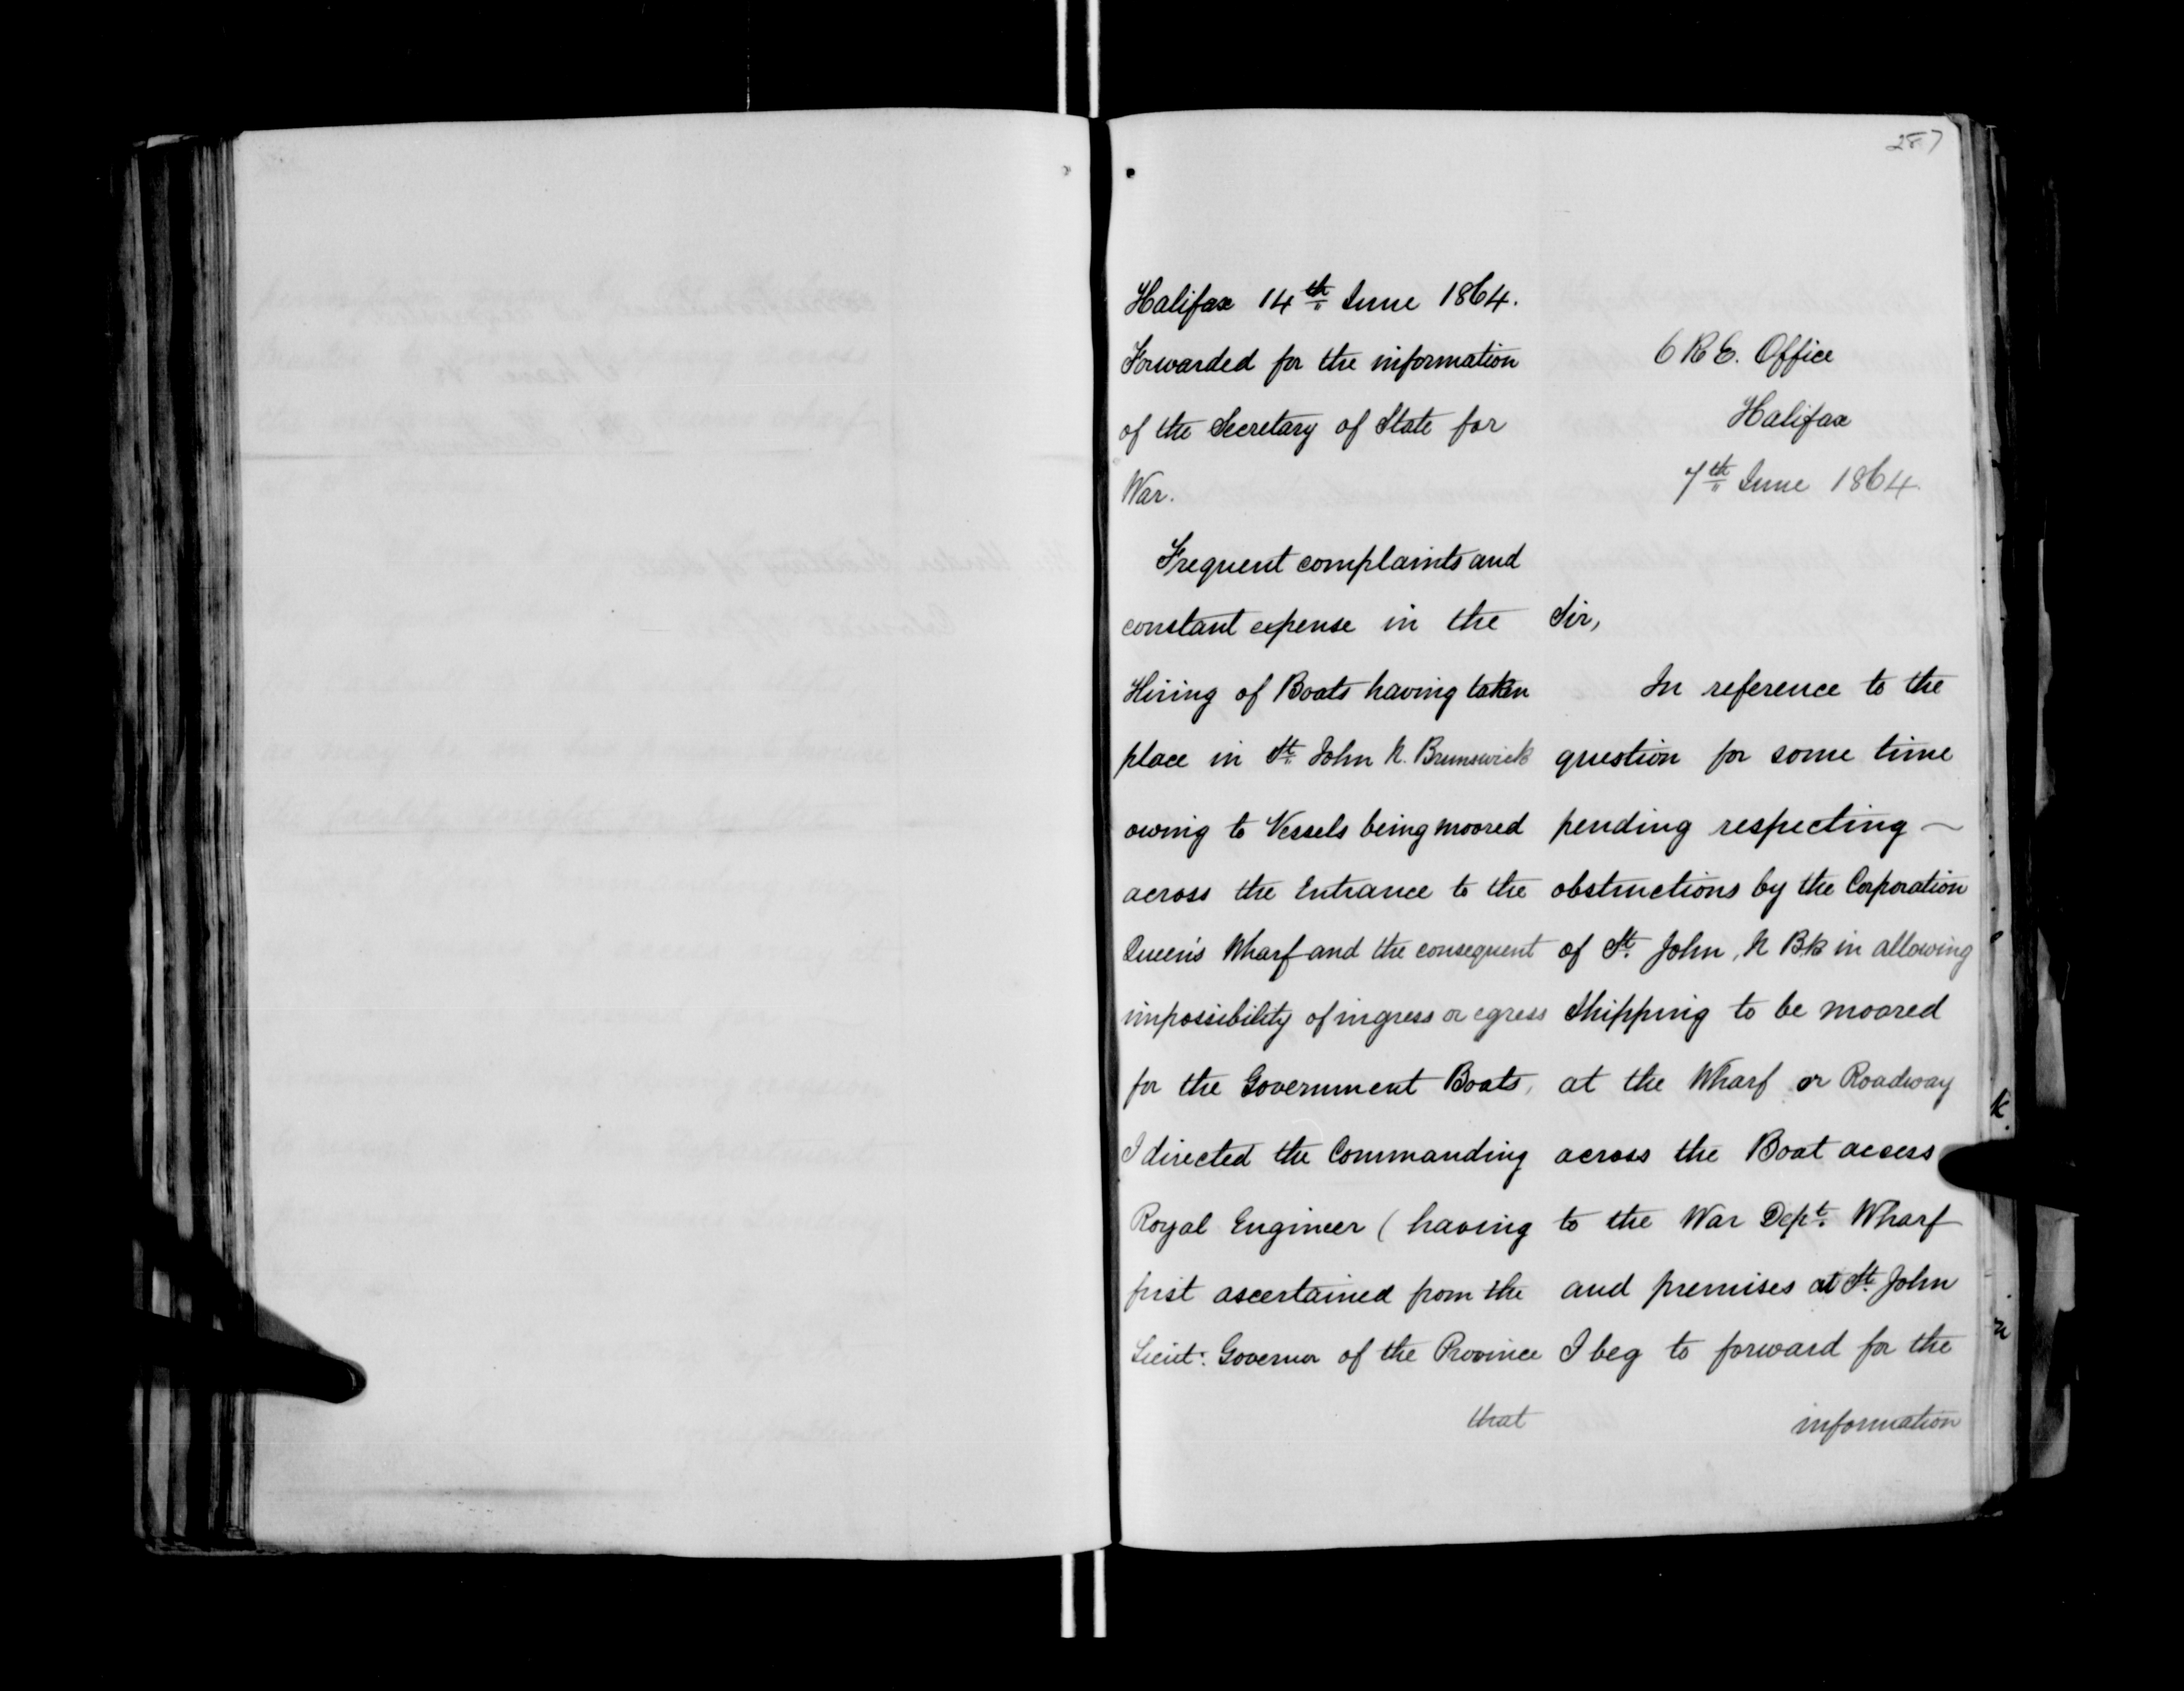 287
Halifax 14th June 1864.
Forwarded for the information
of the Secretary of State for
War.
Frequent complaints and
constant expense in the
Hiring of Boats having taken
place in St. John N. Brunswick
owing to Vessels being moored
across the Entrance to the
Queen's Wharf and the consequent
impossibility of ingress or egress
for the Government Boats,
I directed the Commanding
Royal Engineer ( having
first ascertained from the
Lieut. Governor of the Province
that
C R E. Office
Halifax
7th June 1864.
Sir,
In reference to the
question for some time
pending respecting —
obstructions by the Corporation
of St. John, N Bk in allowing
Shipping to be moored
at the Wharf or Roadway
across the Boat access
to the War Dept. Wharf
and premises at St. John
I beg to forward for the
information